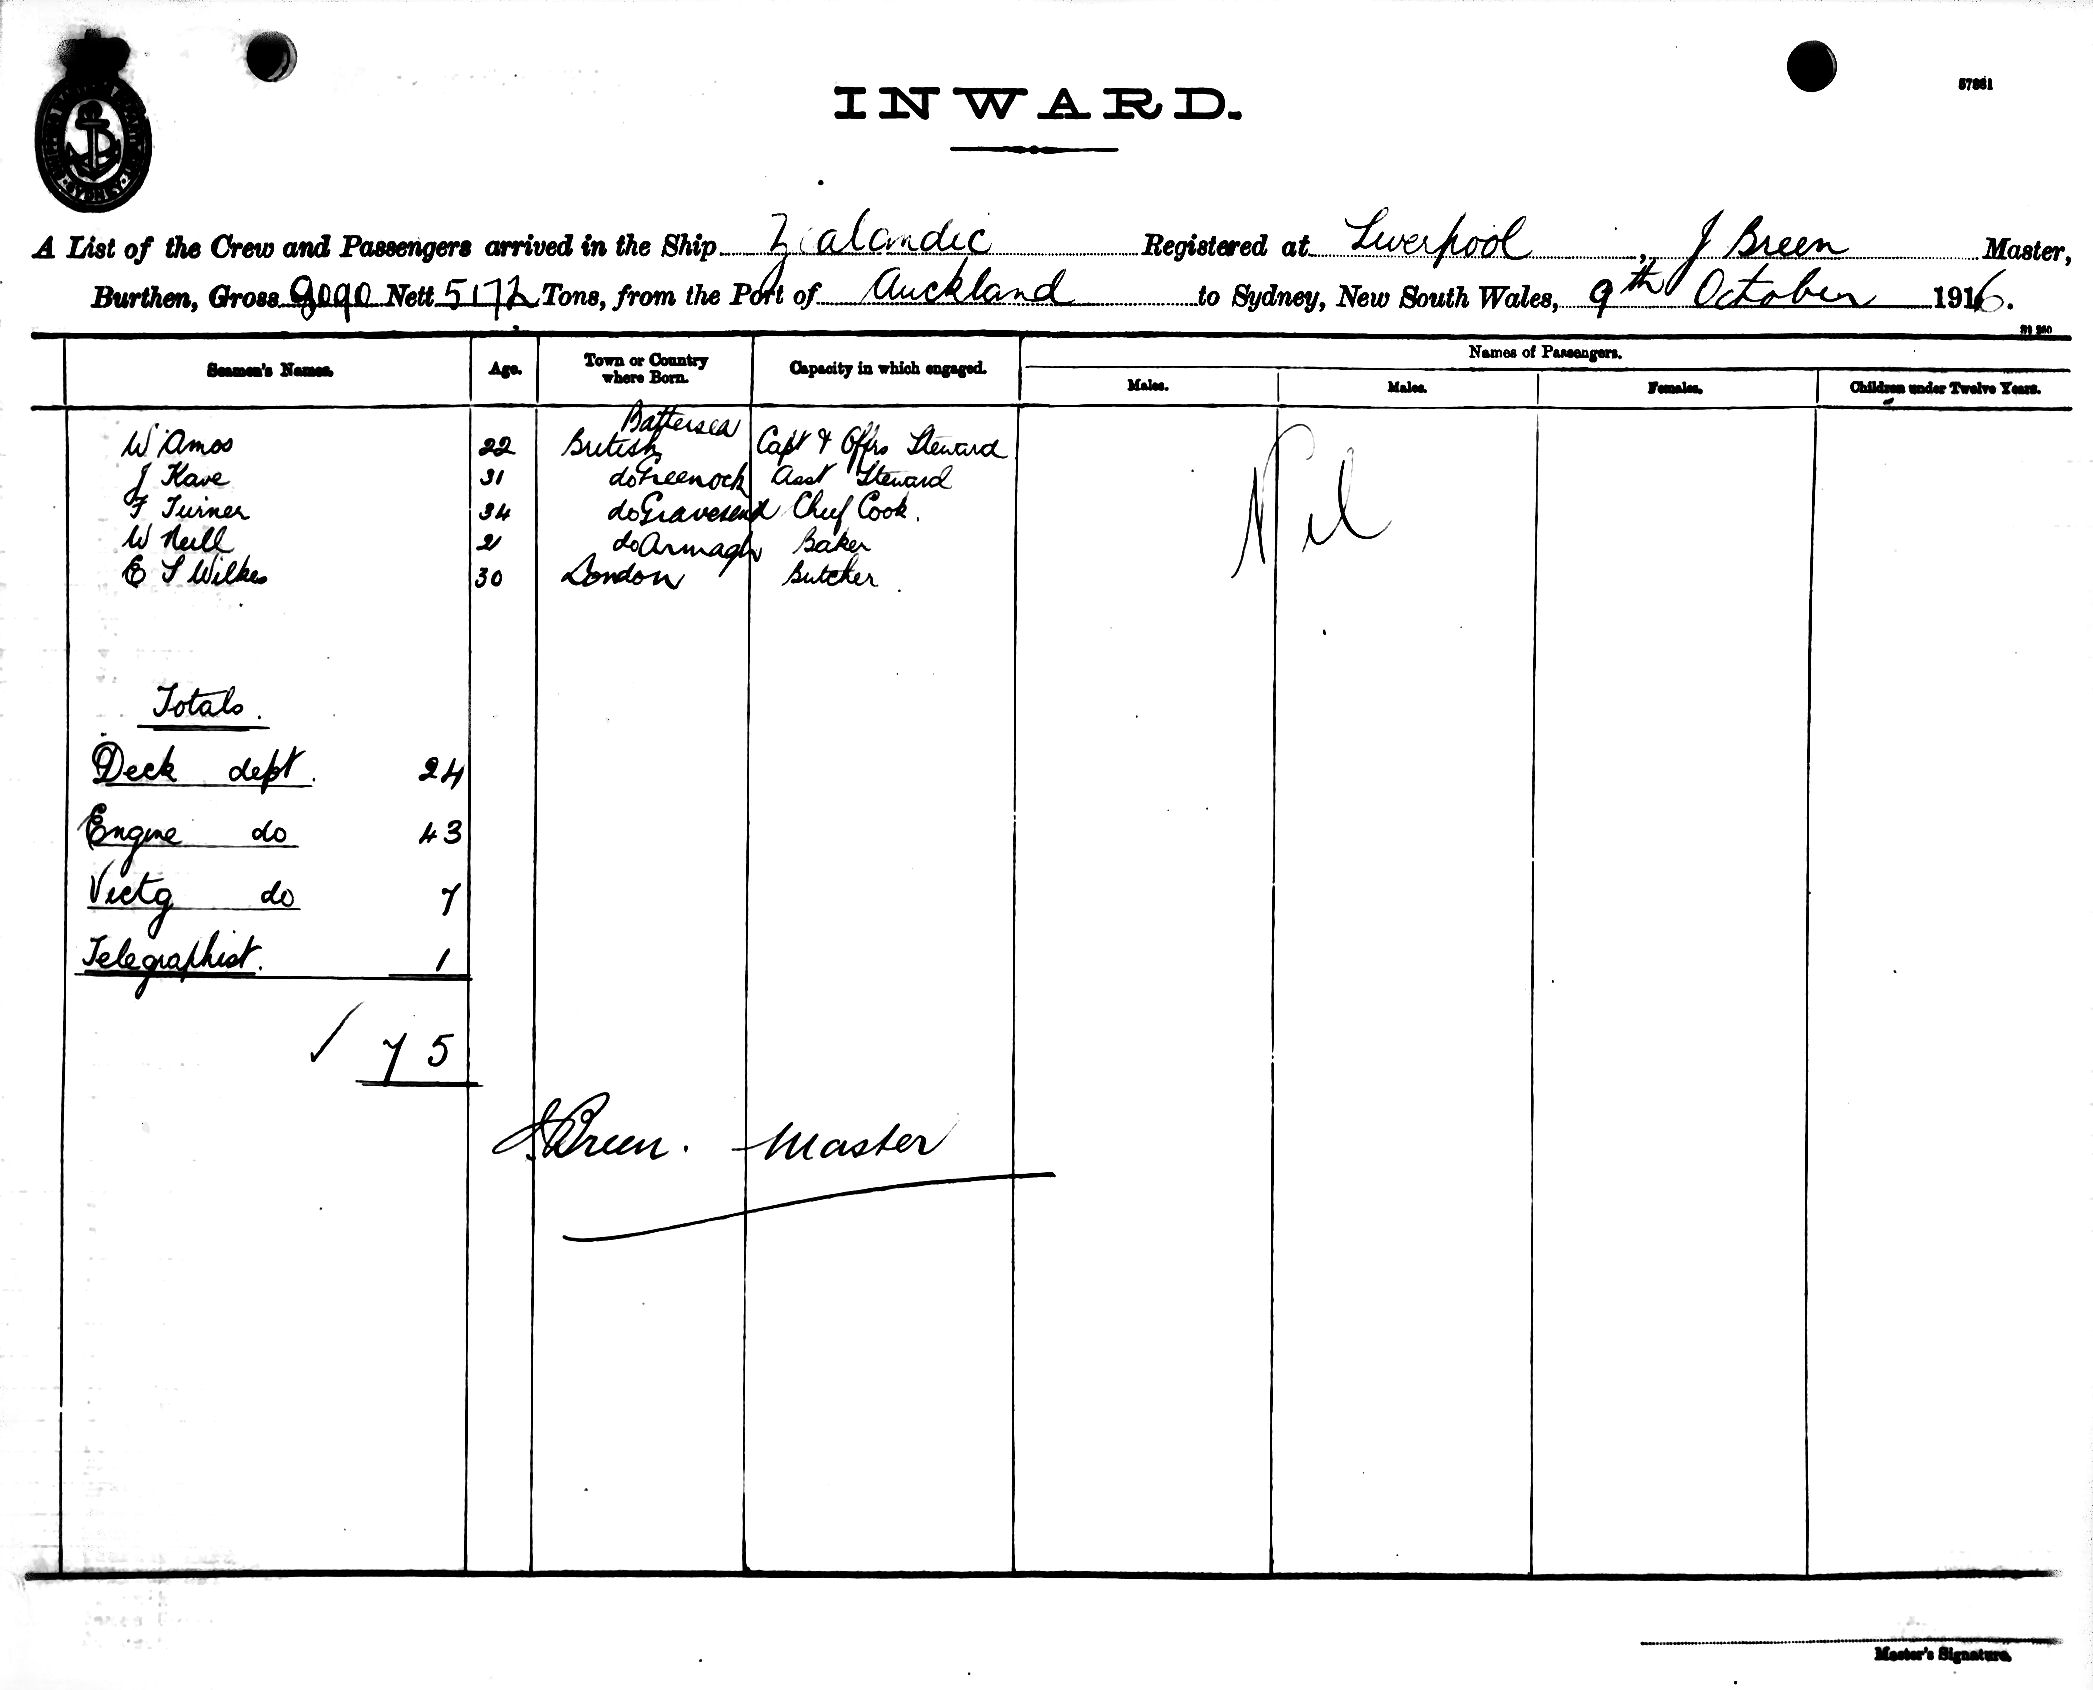 INWARD.
57831
A List of the Crew and Passengers arrived in the Ship Zealandic Registered at Liverpool, J Breen Master,
Burthen, Gross 9090 Nett 5172 Tons, from the Port of Auckland to Sydney, New South Wales, 9th October 1916.
Seamen's Names. Age. Town or Country where Born. Capacity in which engaged. Names of Passengers.
Males. Males. Females. Children under Twelve Years.
Battersea
W Amos 22 British Capt & Offrs Steward
J Kave 31 do Greenock Asst Steward
F Turner 34 do Gravesend Chief Cook.
W Neill 21 do Armagh Baker
E S Wilkes 30 London Butcher
Nil
Totals.
Deck dept. 24
Engine do 43
Victg do 7
Telegraphist. 1
75
J Breen. Master
Master's Signature.